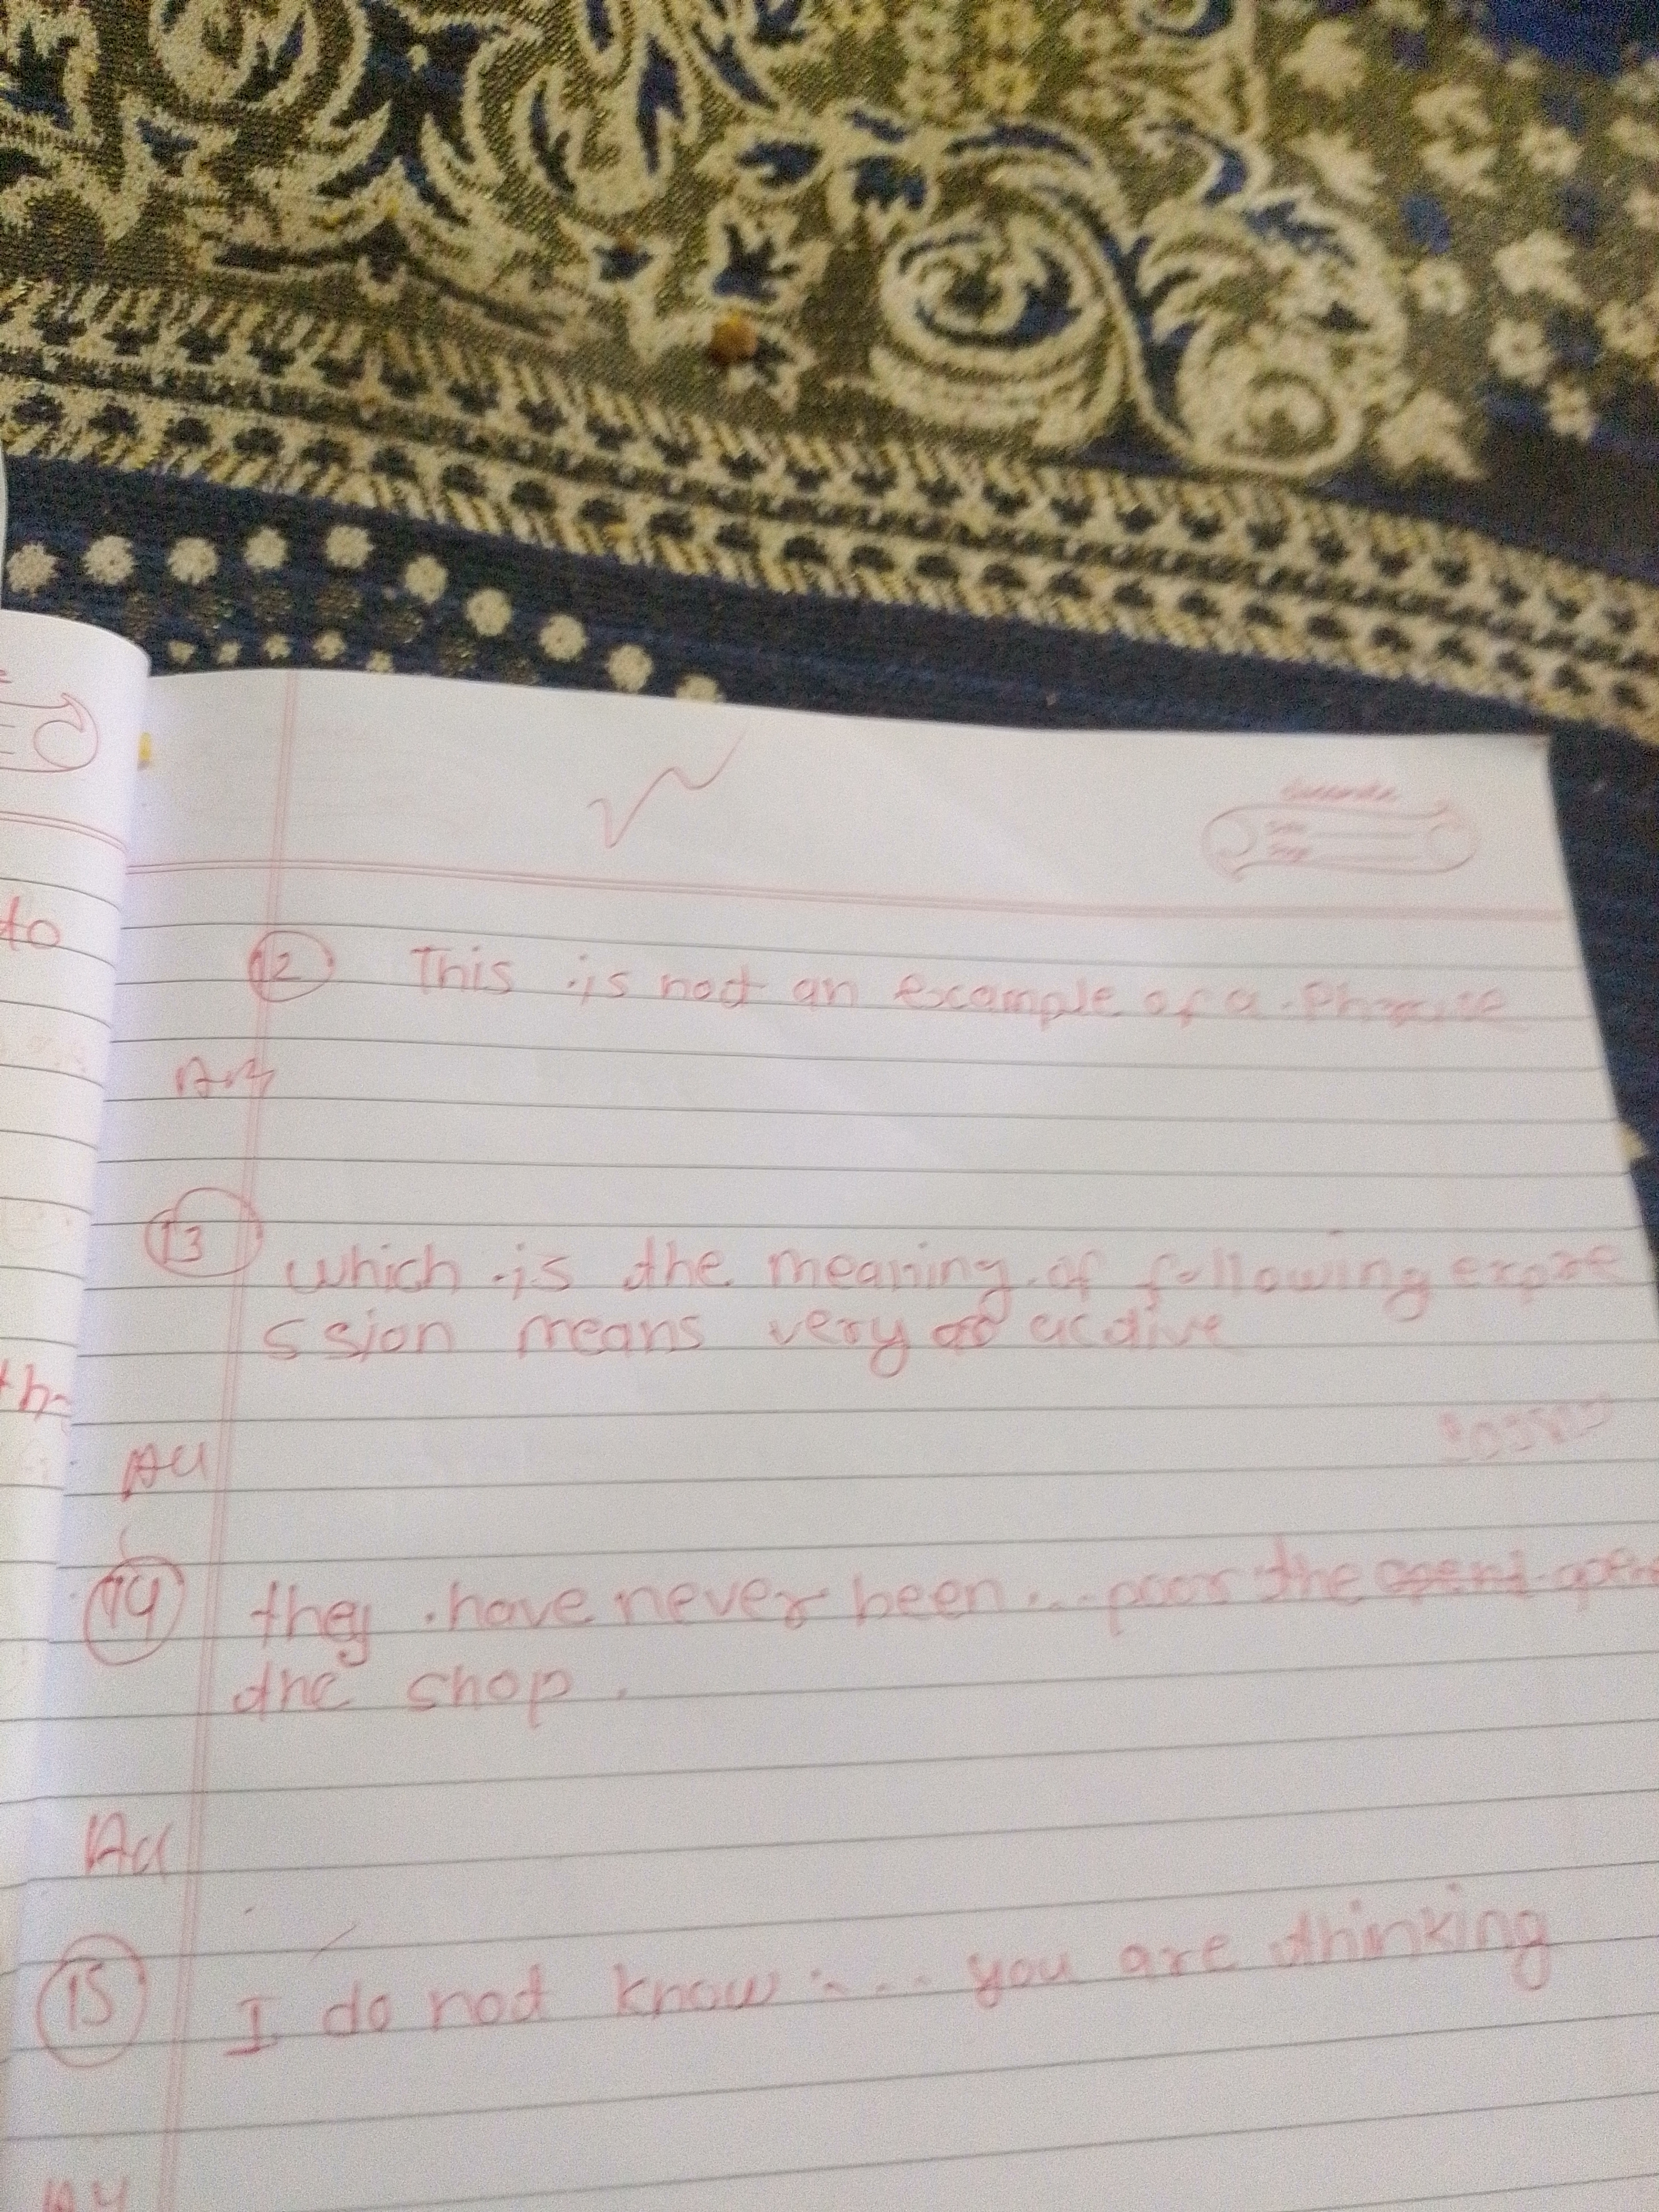 to
th
12 This is not an example of a Phrase
An
13 which is the meaning of following expre
ssion means very active
A4
14 they have never been... poor the open
the shop.
A4
15 I do not know .... you are thinking